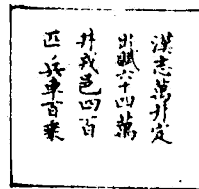 漢志萬井定
出賦六十四萬
井戎馬四百
匹兵車百乘